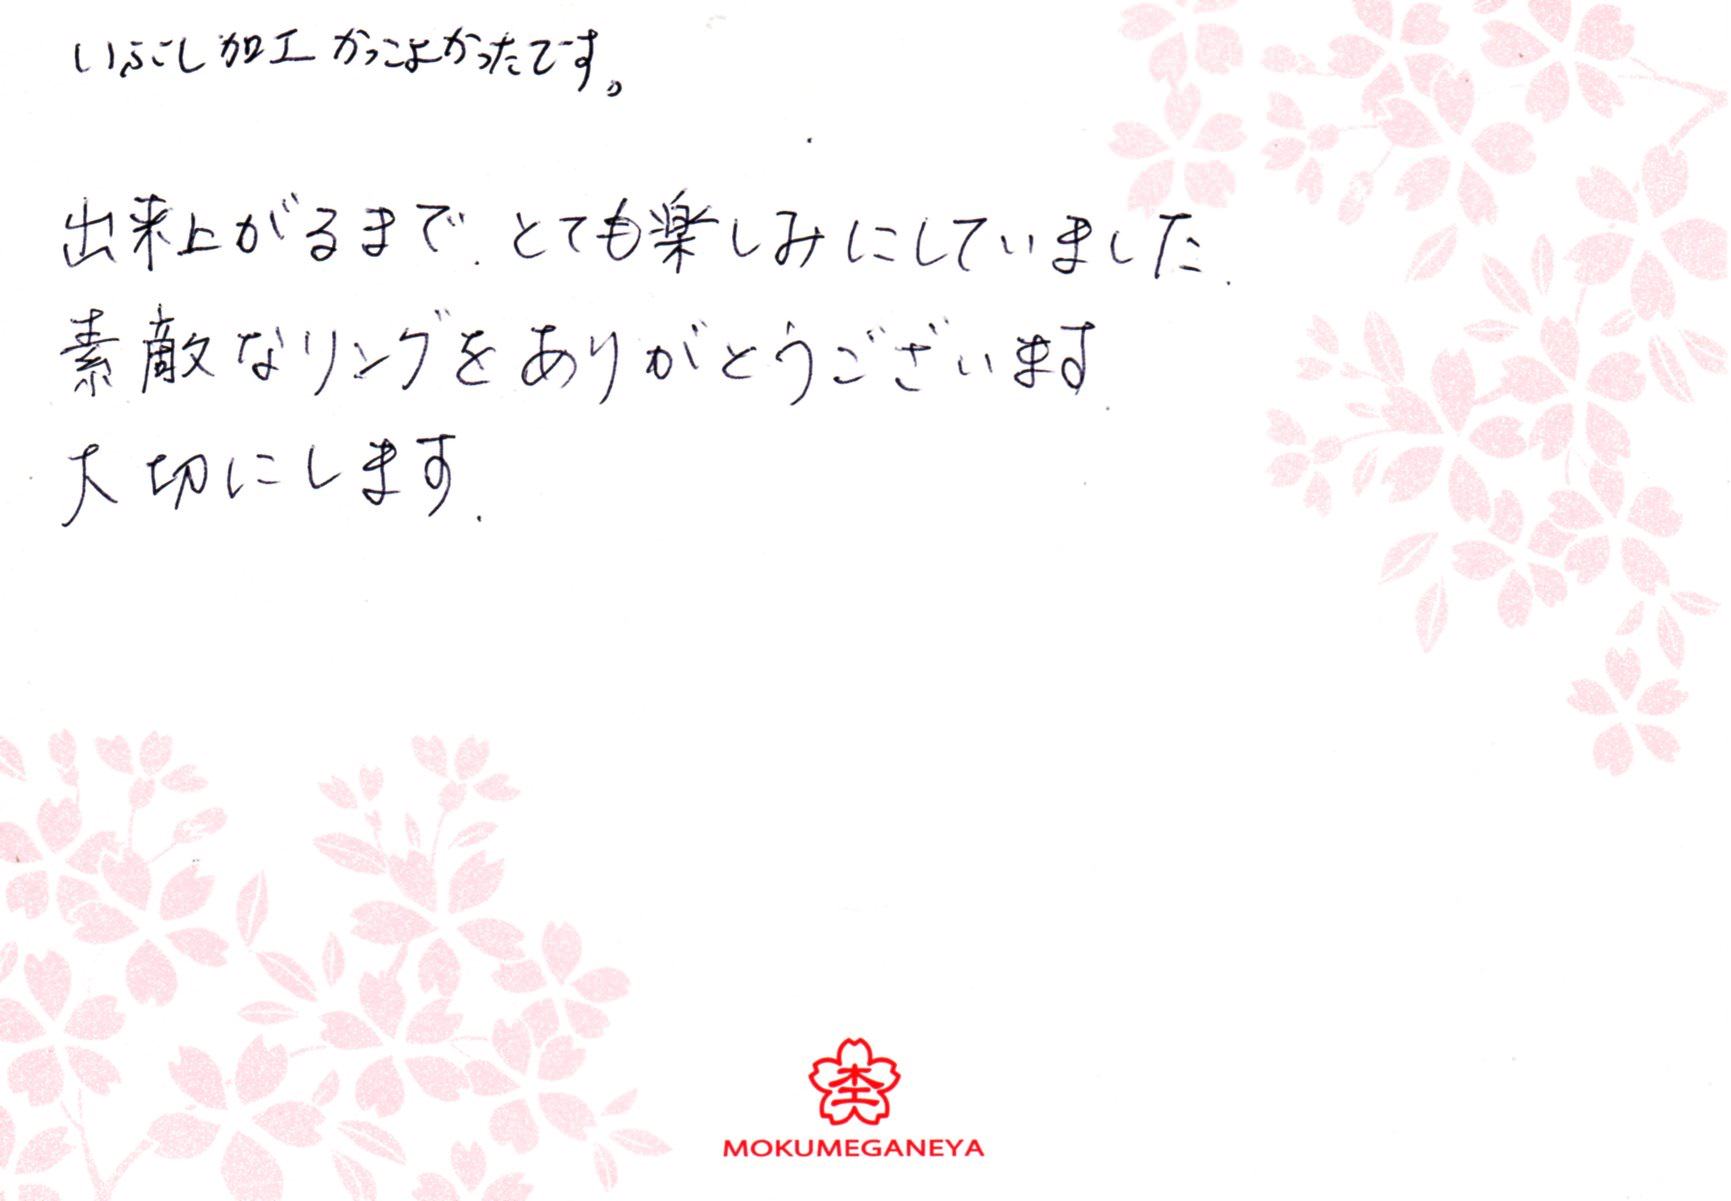 いぶし加工かっこよかったです。
出来上がるまで、とても楽しみにしていました.
素敵なリングをありがとうございます.
大切にします.
杢
MOKUMEGANEYA